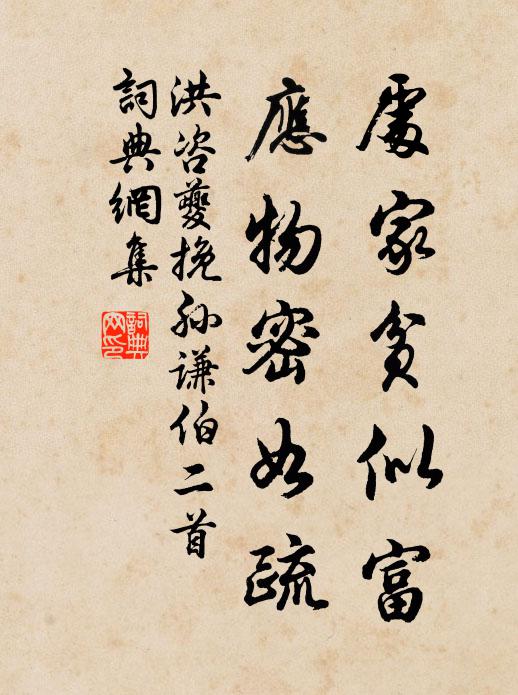 處家貧似富
應物密如疏
洪咨夔挽孙謙伯二首
詞典網集
詞典
网印